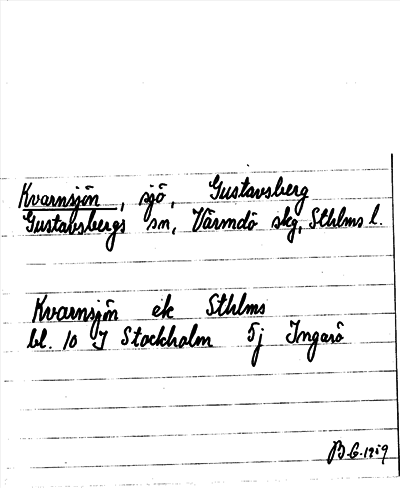 Kvarnsjön, sjö, Gustavsberg
Gustavsbergs sn, Värmdö skg, Sthlms l.
Kvarnsjön ek Sthlms
bl. 10 I Stockholm 5j Ingarö
B.G. 1959